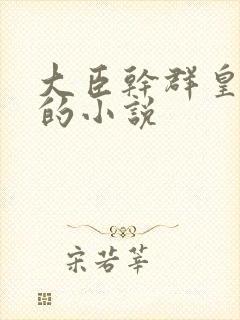 大臣幹群皇
的小説
宋若莘